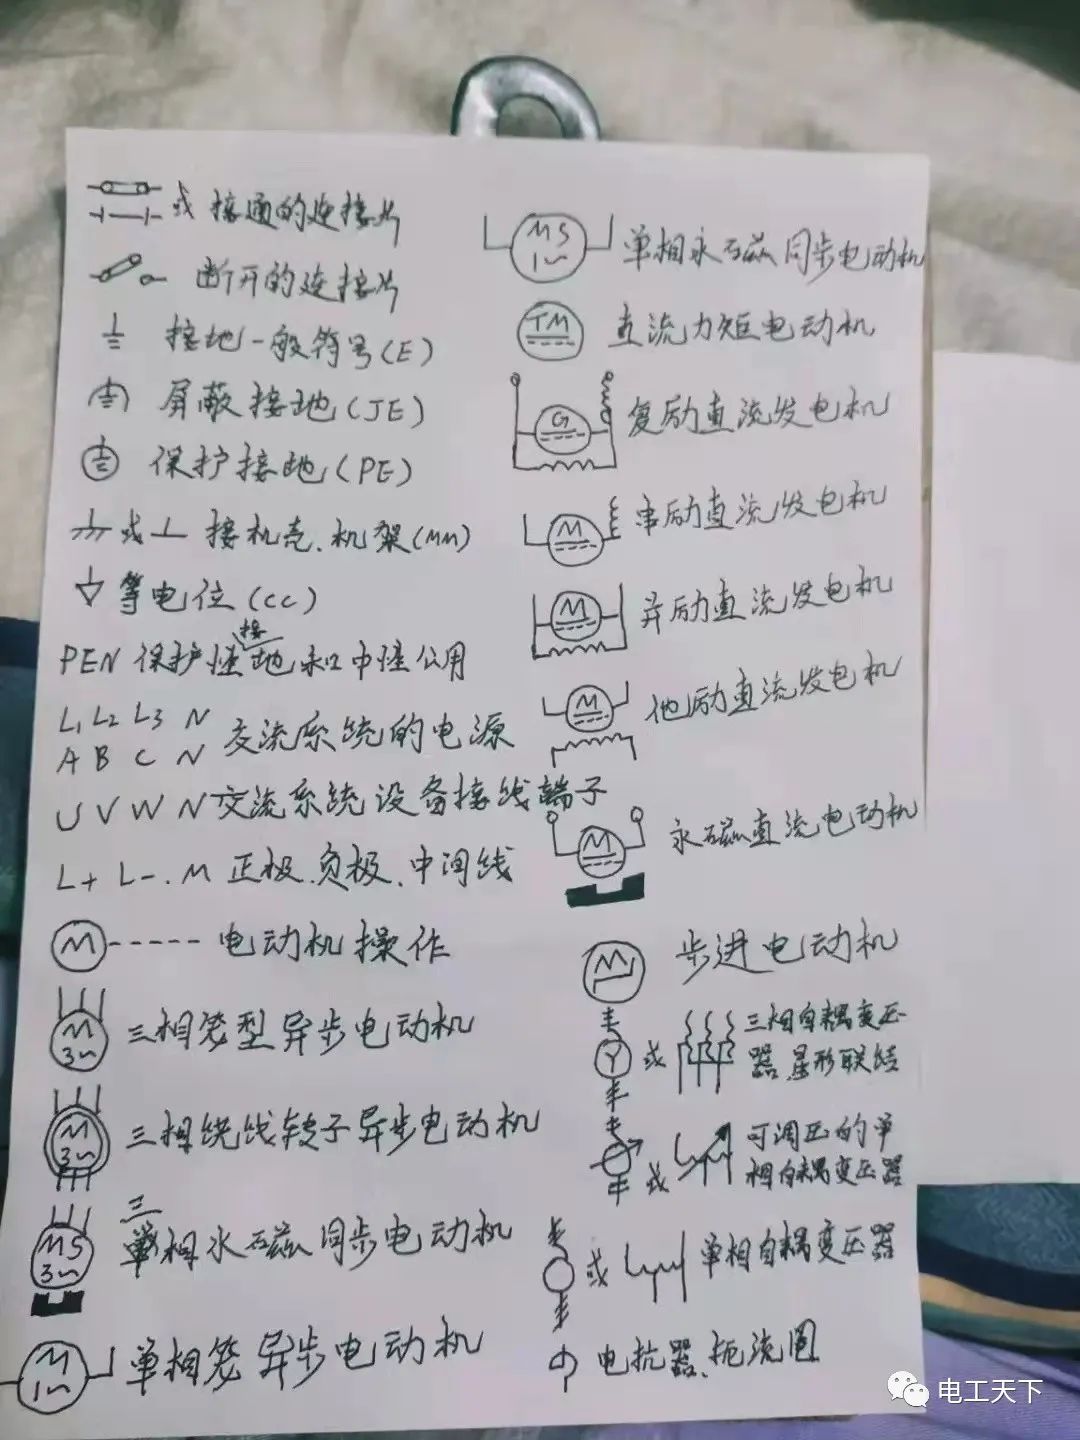 或 接通的连接片
断开的连接片
接地一般符号(E)
屏蔽接地(JE)
保护接地(PE)
或 接机壳、机架(MM)
等电位(CC)
接
PEN 保护 地和中性公用
L1 L2 L3 N
A B C N 交流系统的电源
U V W N 交流系统设备接线端子
L+ L-、M 正极、负极、中间线
M 电动机操作
M 3~ 三相笼型异步电动机
M 3~ 三相绕线转子异步电动机
三
MS 3~ 相永磁同步电动机
M 1~ 单相笼异步电动机
MS 1~ 单相永磁同步电动机
TM 直流力矩电动机
G 复励直流发电机
M 串励直流发电机
M 异励直流发电机
M 他励直流发电机
M 永磁直流电动机
M 步进电动机
Y 或 三相自耦变压
器、星形联结
或 可调压的单
相自耦变压器
或 单相自耦变压器
电抗器、扼流圈
电工天下